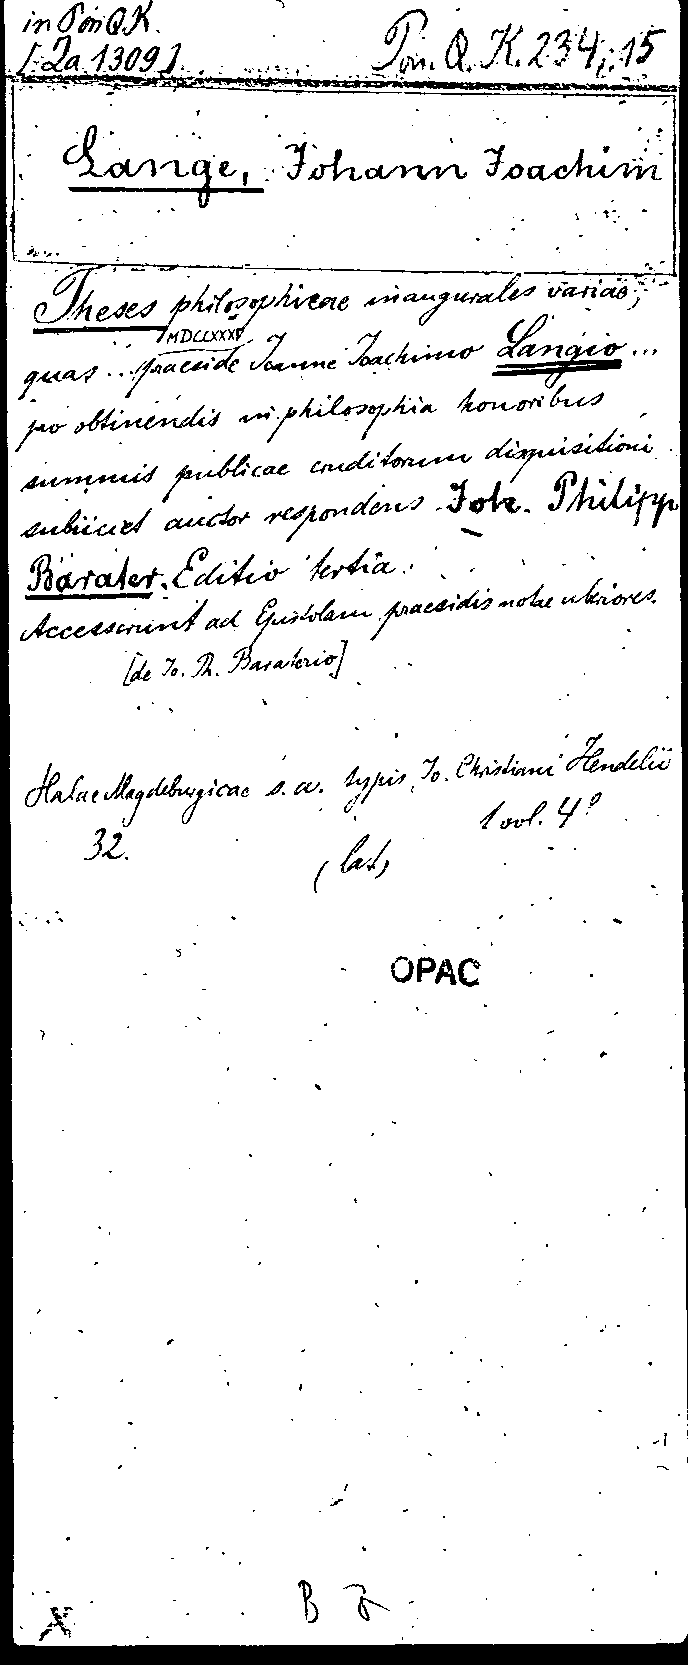 in Pon Q.K.
[Za 1309].
Pon. Q. K. 234,:15
Lange, Johann Joachim
Theses philosophicae inaugurales variae,
MDCCXXXV
quas ... praeside Joanne Joachimo Langio ...
pro obtinendis in philosophia honoribus
summis publicae eruditorum disquisitioni
subiiciet auctor respondens Joh. Philipp
Baratier. Editio tertia.
Accesserunt ad Epistolam praesidis notae uberiores.
[de Jo. Ph. Baraterio]
Halae Magdeburgicae s. a. typis Jo. Christiani Hendelii
32.
1 vol. 4°
(lat)
OPAC
B